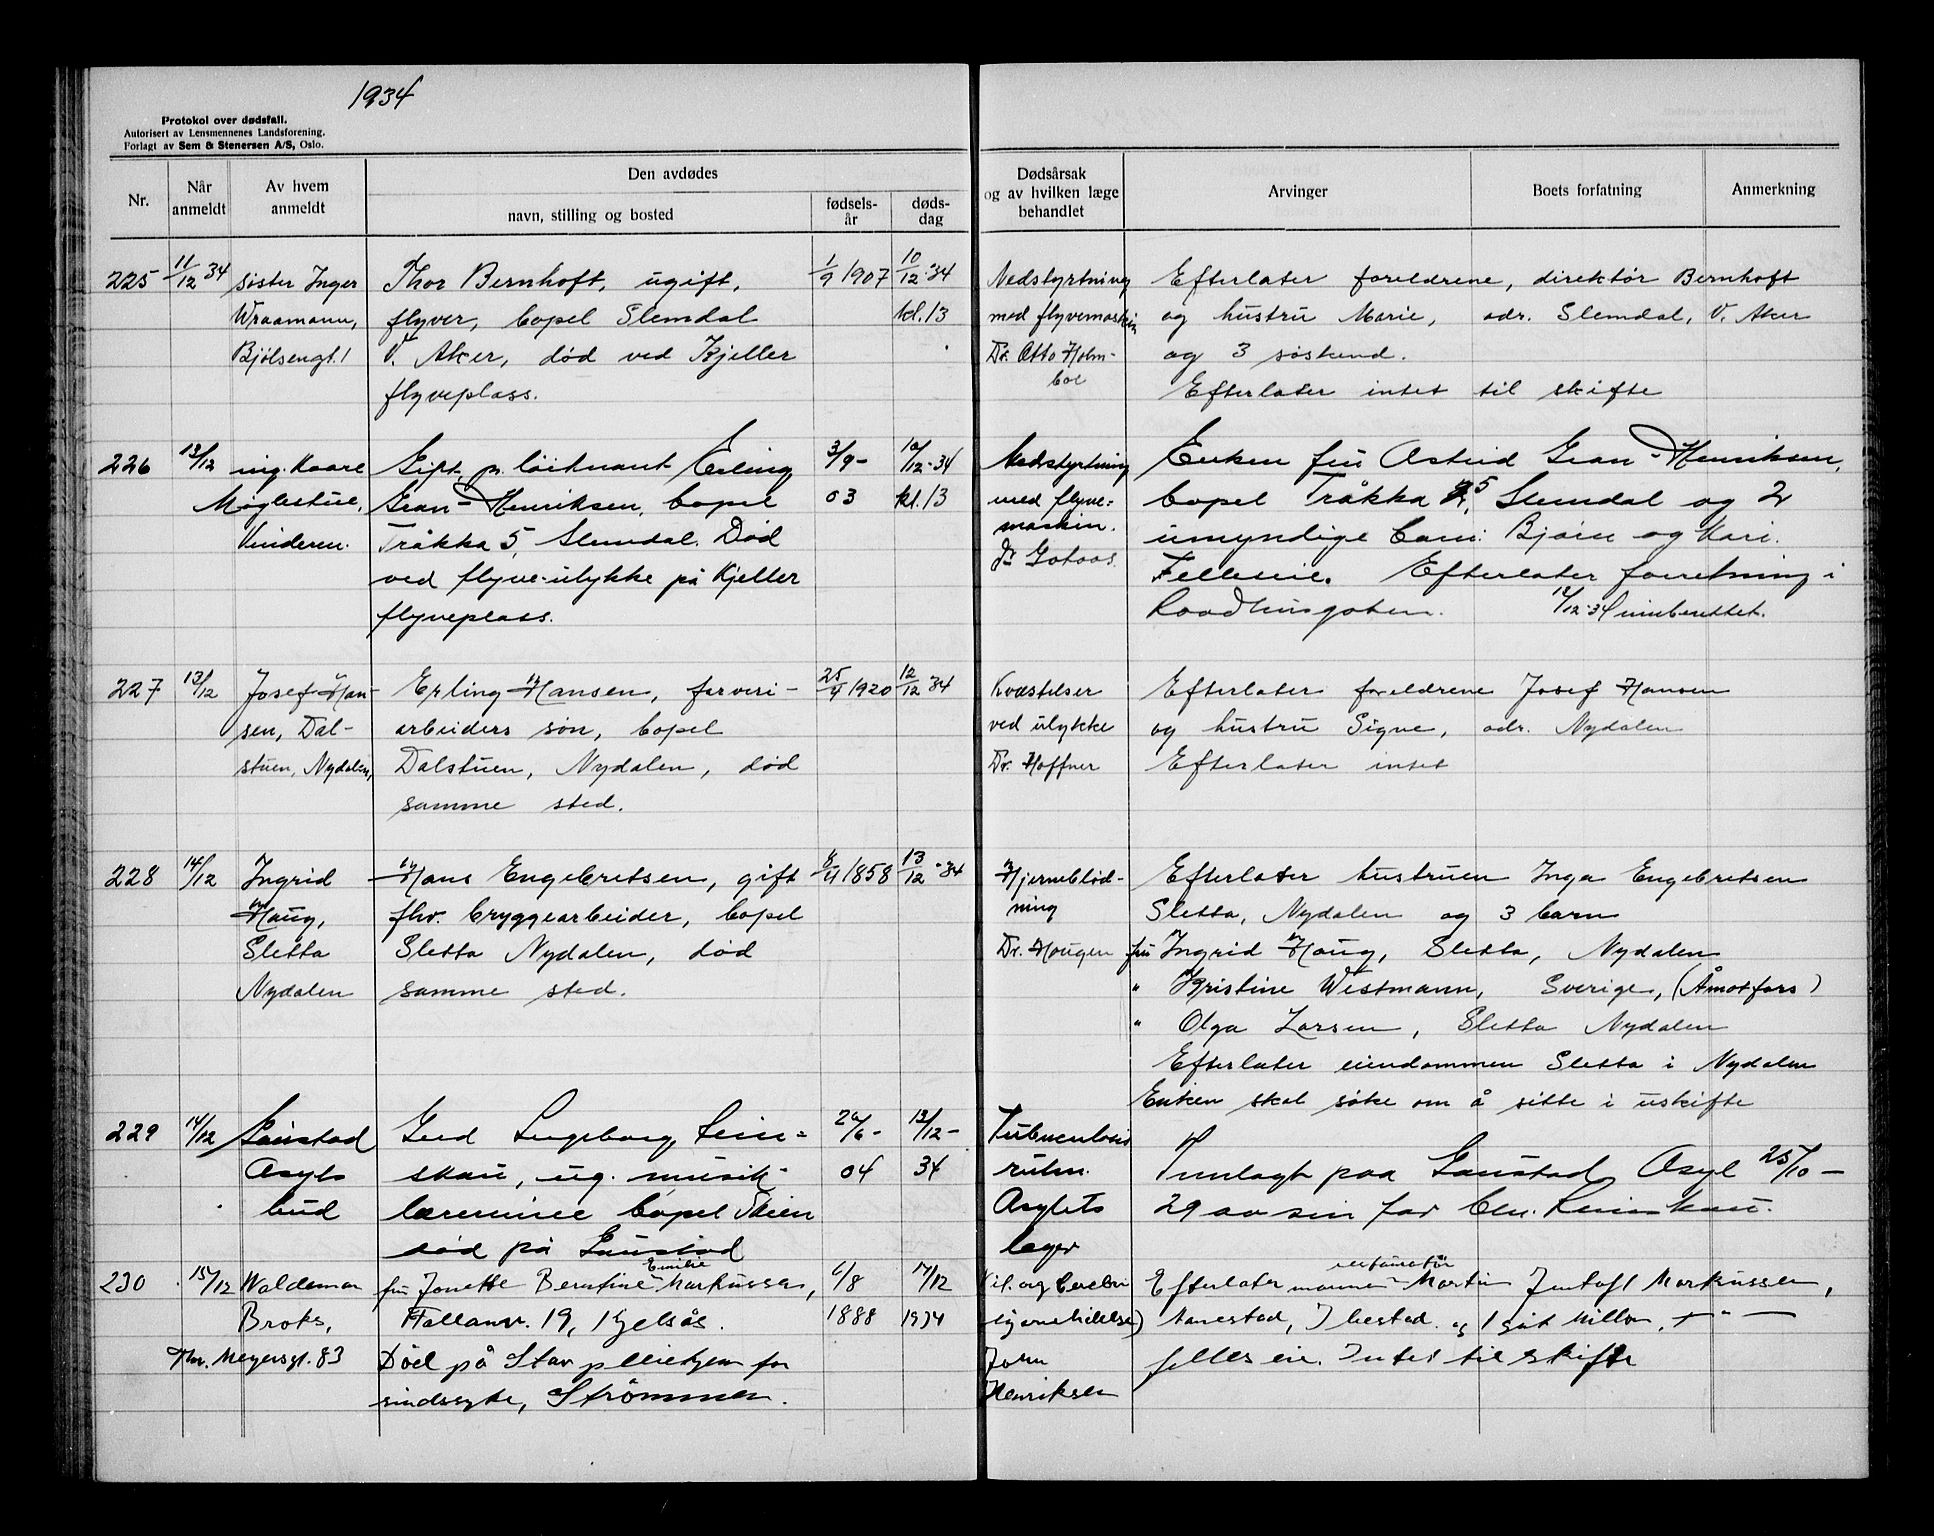 1934
Protokol over dødsfall.
Autorisert av Lensmennenes Landsforening.
Forlagt av Sem & Stenersen A/S, Oslo.
Nr.
Når anmeldt
Av hvem anmeldt
Den avdødes
navn, stilling og bosted
fødsels-år
døds-dag
Dødsårsak og av hvilken læge behandlet
Arvinger
Boets forfatning
Anmerkning
225
11/12 34
søster Inger
Wraamann,
Bjølsengt. 1
Thor Bernhoft, ugift,
flyver, bopel Slemdal
V. Aker, død ved Kjeller
flyveplass.
1/9 1907
10/12-34
kl. 13
Nedstyrtning
med flyvemaskin
Dr. Otto Holm-
boe
Efterlater foreldrene, direktør Bernhoft
og hustru Marie, adr. Slemdal, V. Aker
og 3 søskend.
Efterlater intet til skifte
226
13/12
ing. Kaare
Møglestue,
Vinderen.
Gift, p. løitnant Erling
Gran-Henriksen, bopel
Tråkka 5, Slemdal. Død
ved flyve-ulykke på Kjeller
flyveplass.
3/9-
03
10/12-34
kl. 13
Nedstyrtning
med flyve-
maskin.
dr
Enken fru Astrid Gran-Henriksen,
bopel Tråkka 5, Slemdal og 2
umyndige barn: Bjørn og Kari.
Felleseie. Efterlater forretning i
Raadhusgaten. 12/12-34 innberettet.
227
13/12
Josef Han-
sen, Dal-
stuen, Nydalen,
Erling Hansen, farveri-
arbeiders søn, bopel
Dalstuen, Nydalen, død
samme sted.
25/4 1920
12/12 34
Kvæstelser
ved ulykke
Dr. Haffner
Efterlater foreldrene Josef Hansen
og hustru Signe, adr. Nydalen
Efterlater intet
228
14/12
Ingrid
Haug,
Sletta
Nydalen
Hans Engebretsen, gift
fhv. bryggearbeider, bopel
Sletta Nydalen, død
samme sted.
8/4 1858
13/12-34
Hjerneblød-
ning
Dr. Haugen
Efterlater hustruen Inga Engebretsen
Sletta, Nydalen og 3 barn
fru Ingrid Haug, Sletta, Nydalen
" Kristine Westmann, Sverige, (Åmotfors)
" Olga Larsen, Sletta Nydalen
Efterlater eiendommen Sletta i Nydalen
Enken skal søke om å sitte i uskifte
229
14/12
Gaustad
Asyls
bud
Gerd Ingeborg Lein-
skau, ug. musik-
lærerinne bopel Skien
død på Gaustad
26/6-
04
13/12-
34
Tuberculosis
pulm.
Asylets
læger
Innlagt paa Gaustad Asyl 25/10-
29 av sin far Chr. Leinskau.
230
15/12
Waldemar
Broks,
Thv. Meyersgt. 83
Emilie
fru Jonette Berntine Markussen,
Fallanv. 19, Kjelsås.
Død på Stav pleiehjem for
sindssyke, Strømmen.
6/8
1888
14/12
1934
John
Henriksen
Efterlater mannen Martin Jentoft Markussen,
felles eie. Intet til skifte